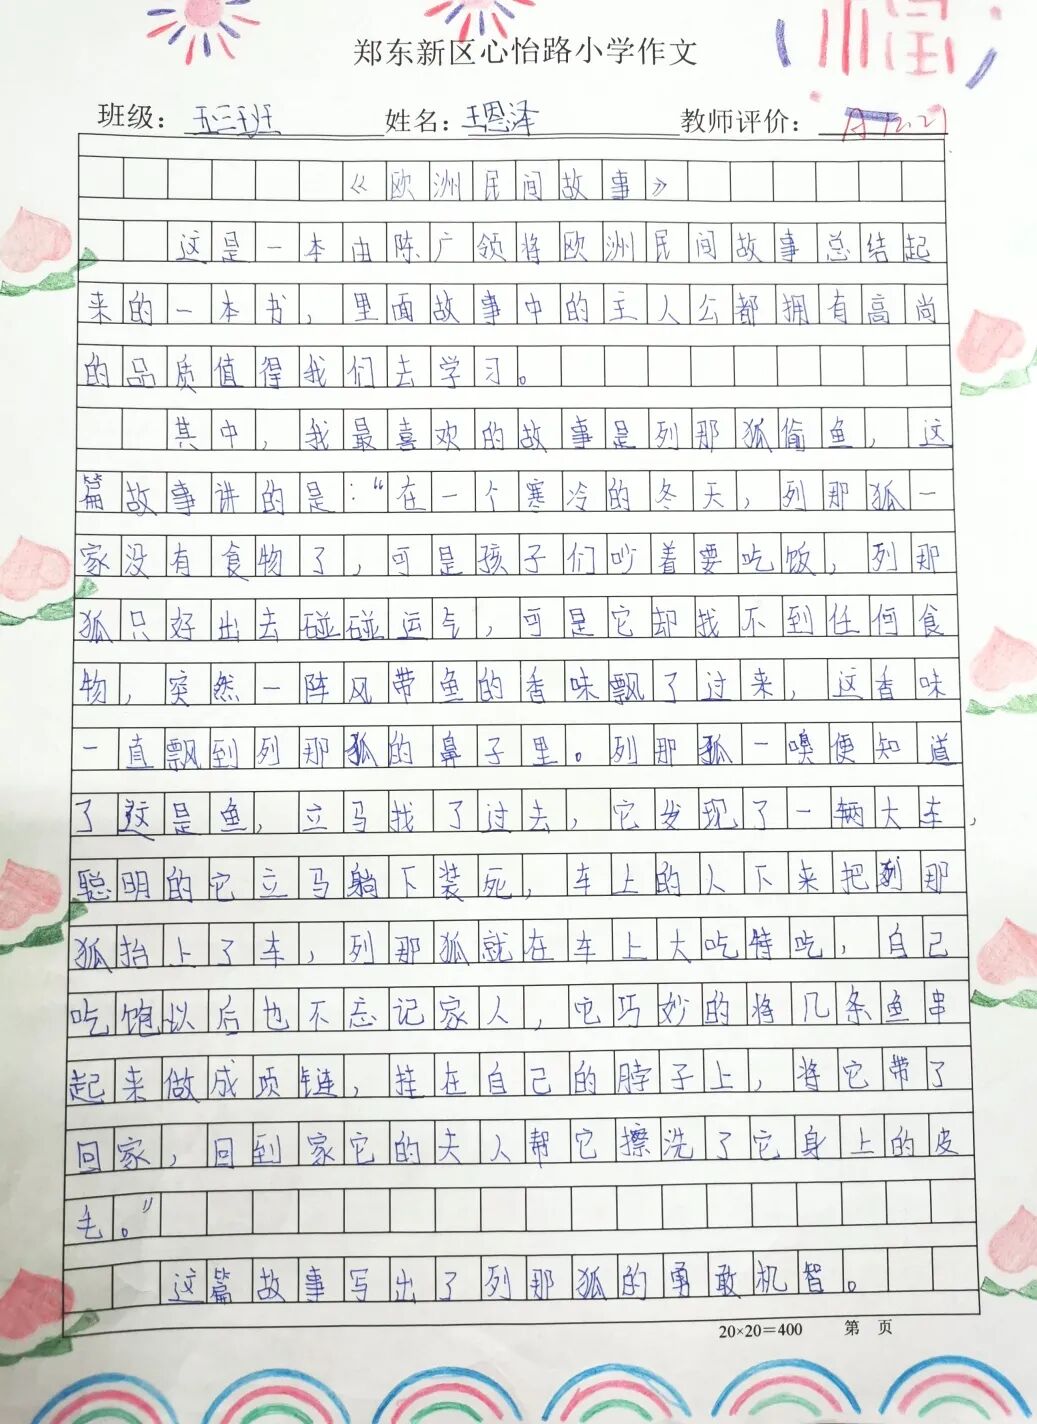 郑东新区心怡路小学作文
班级：五三班 姓名：王恩泽 教师评价：
《欧洲民间故事》
这是一本由陈广领将欧洲民间故事总结起
来的一本书，里面故事中的主人公都拥有高尚
的品质值得我们去学习。
其中，我最喜欢的故事是列那狐偷鱼，这
篇故事讲的是：“在一个寒冷的冬天，列那狐一
家没有食物了，可是孩子们吵着要吃饭，列那
狐只好出去碰碰运气，可是它却找不到任何食
物，突然一阵风带鱼的香味飘了过来，这香味
一直飘到列那狐的鼻子里。列那狐一嗅便知道
了这是鱼，立马找了过去，它发现了一辆大车，
聪明的它立马躺下装死，车上的人下来把列那
狐抬上了车，列那狐就在车上大吃特吃，自己
吃饱以后也不忘记家人，它巧妙的将几条鱼串
起来做成项链，挂在自己的脖子上，将它带了
回家，回到家它的夫人帮它擦洗了它身上的皮
毛。”
这篇故事写出了列那狐的勇敢机智。
20×20=400 第 页